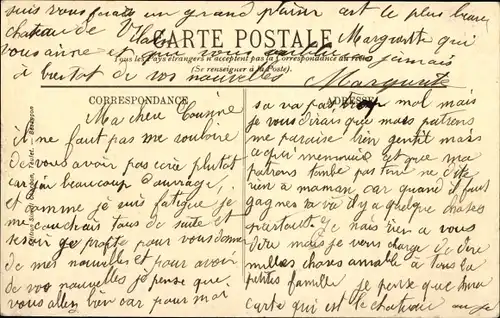 suis vous ferais un grand plaisir ast le plus beau
chateau de Marguerite qui
vous aime et que vous jamais
a bientot de vos nouvelles
Marguerite
CARTE POSTALE
Tous les Pays étrangers n'acceptent pas la Correspondance au
(Se renseigner à la Poste).
CORRESPONDANCE
ADRESSE
Ma chere Cousine
il ne faut pas me vouloire
de vous avoir pas ecrie plutot
car jai beaucoup d'ouvrage,
et comme je suis fatigue je
me couchais tous de suite et
se soir je profite pour vous donne
de mes nouvelles et pour avoir
de vos nouvelles je pense que
vous allez bien car pour moi
sa va pas trop mal mais
je vous dirais que mais patrons
me paraise bien gentit mais
ce qui et que ma
patrons tombe pas ne dite
rien a maman car quand il faut
gagner sa va il y a quelque choses
partoute je nais rien a vous
dire mais je vous charge de dire
milles choses amiable a tous la
petites famille je pense que ma
carte qui est le chateau